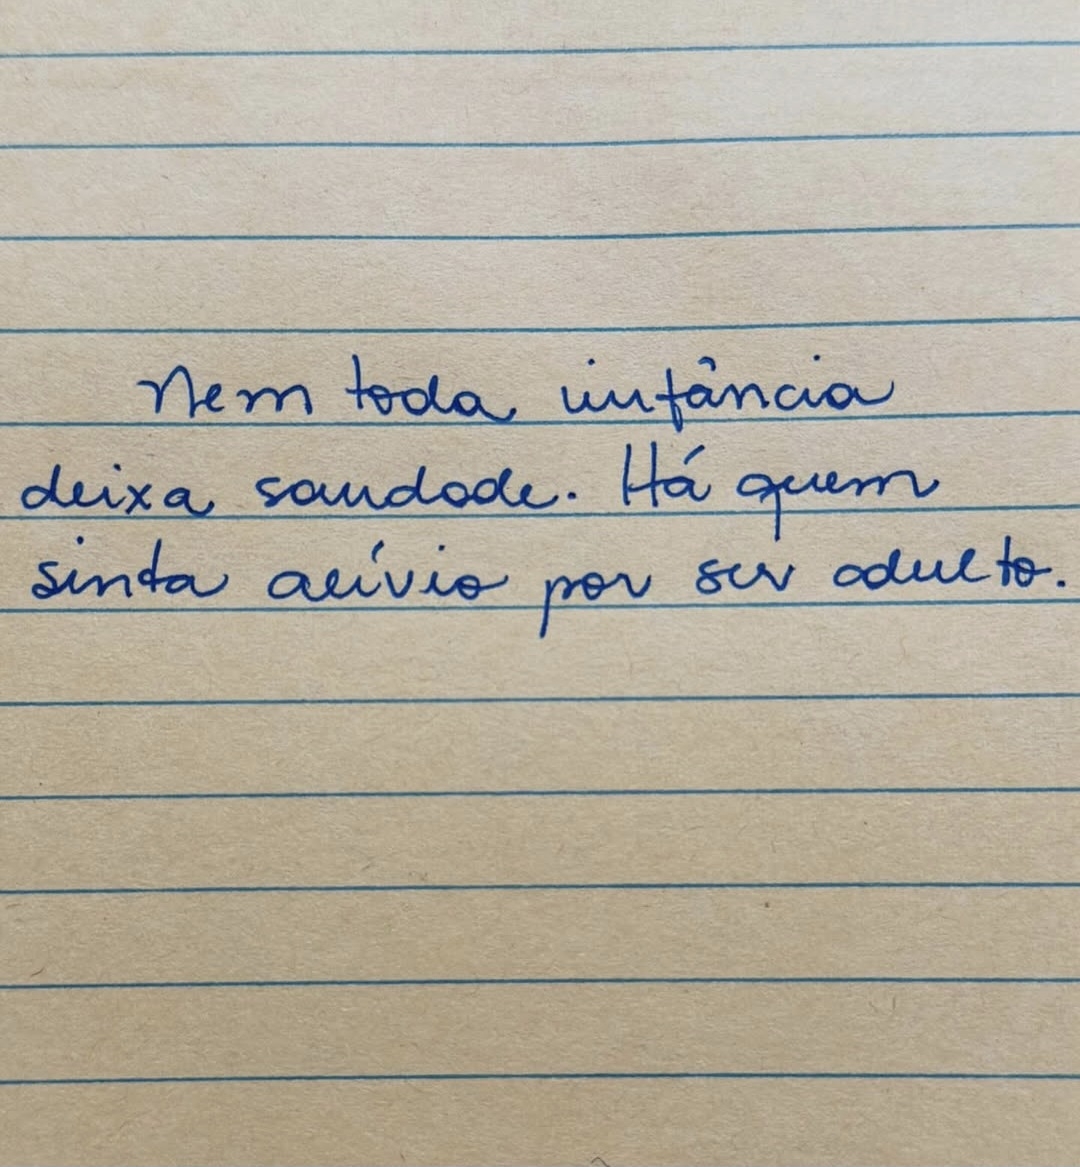 Nem toda infância
deixa saudade. Há quem
sinta alívio por ser adulto.